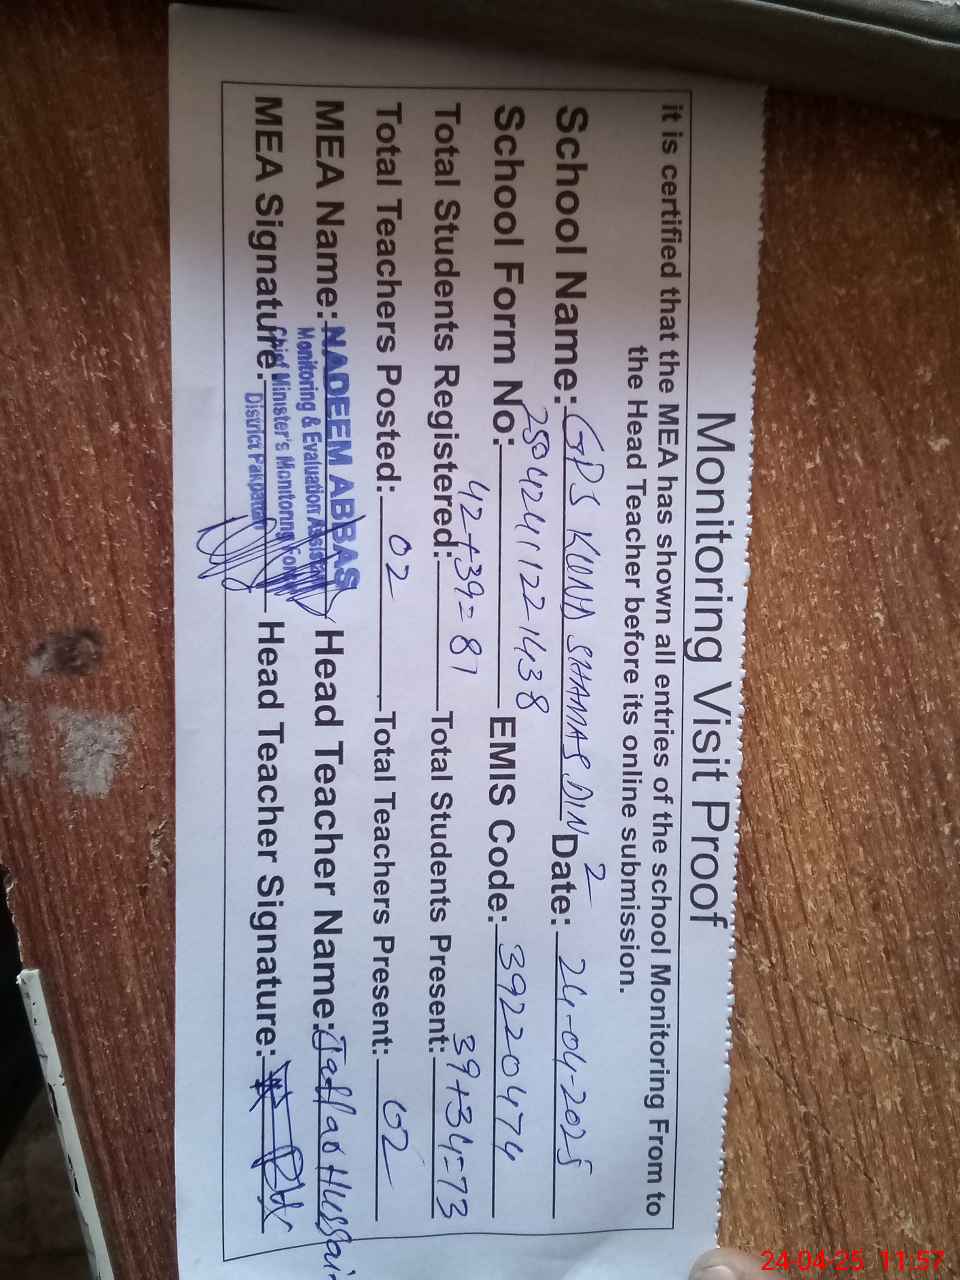 Monitoring Visit Proof
it is certified that the MEA has shown all entries of the school Monitoring From to
the Head Teacher before its online submission.
School Name: GPS KUND SHAMAS DIN 2 Date: 24-04-2025
School Form No: 250424112214 38 EMIS Code: 39220474
Total Students Registered: 42+39=81 Total Students Present: 39+34=73
Total Teachers Posted: 02 Total Teachers Present: 02
MEA Name: NADEEM ABBAS Head Teacher Name: Jaffar Hussain
Monitoring & Evaluation Assistant
MEA Signature: Head Teacher Signature:
Chief Minister's Monitoring Force
District Pakpattan
24-04-25 11:57